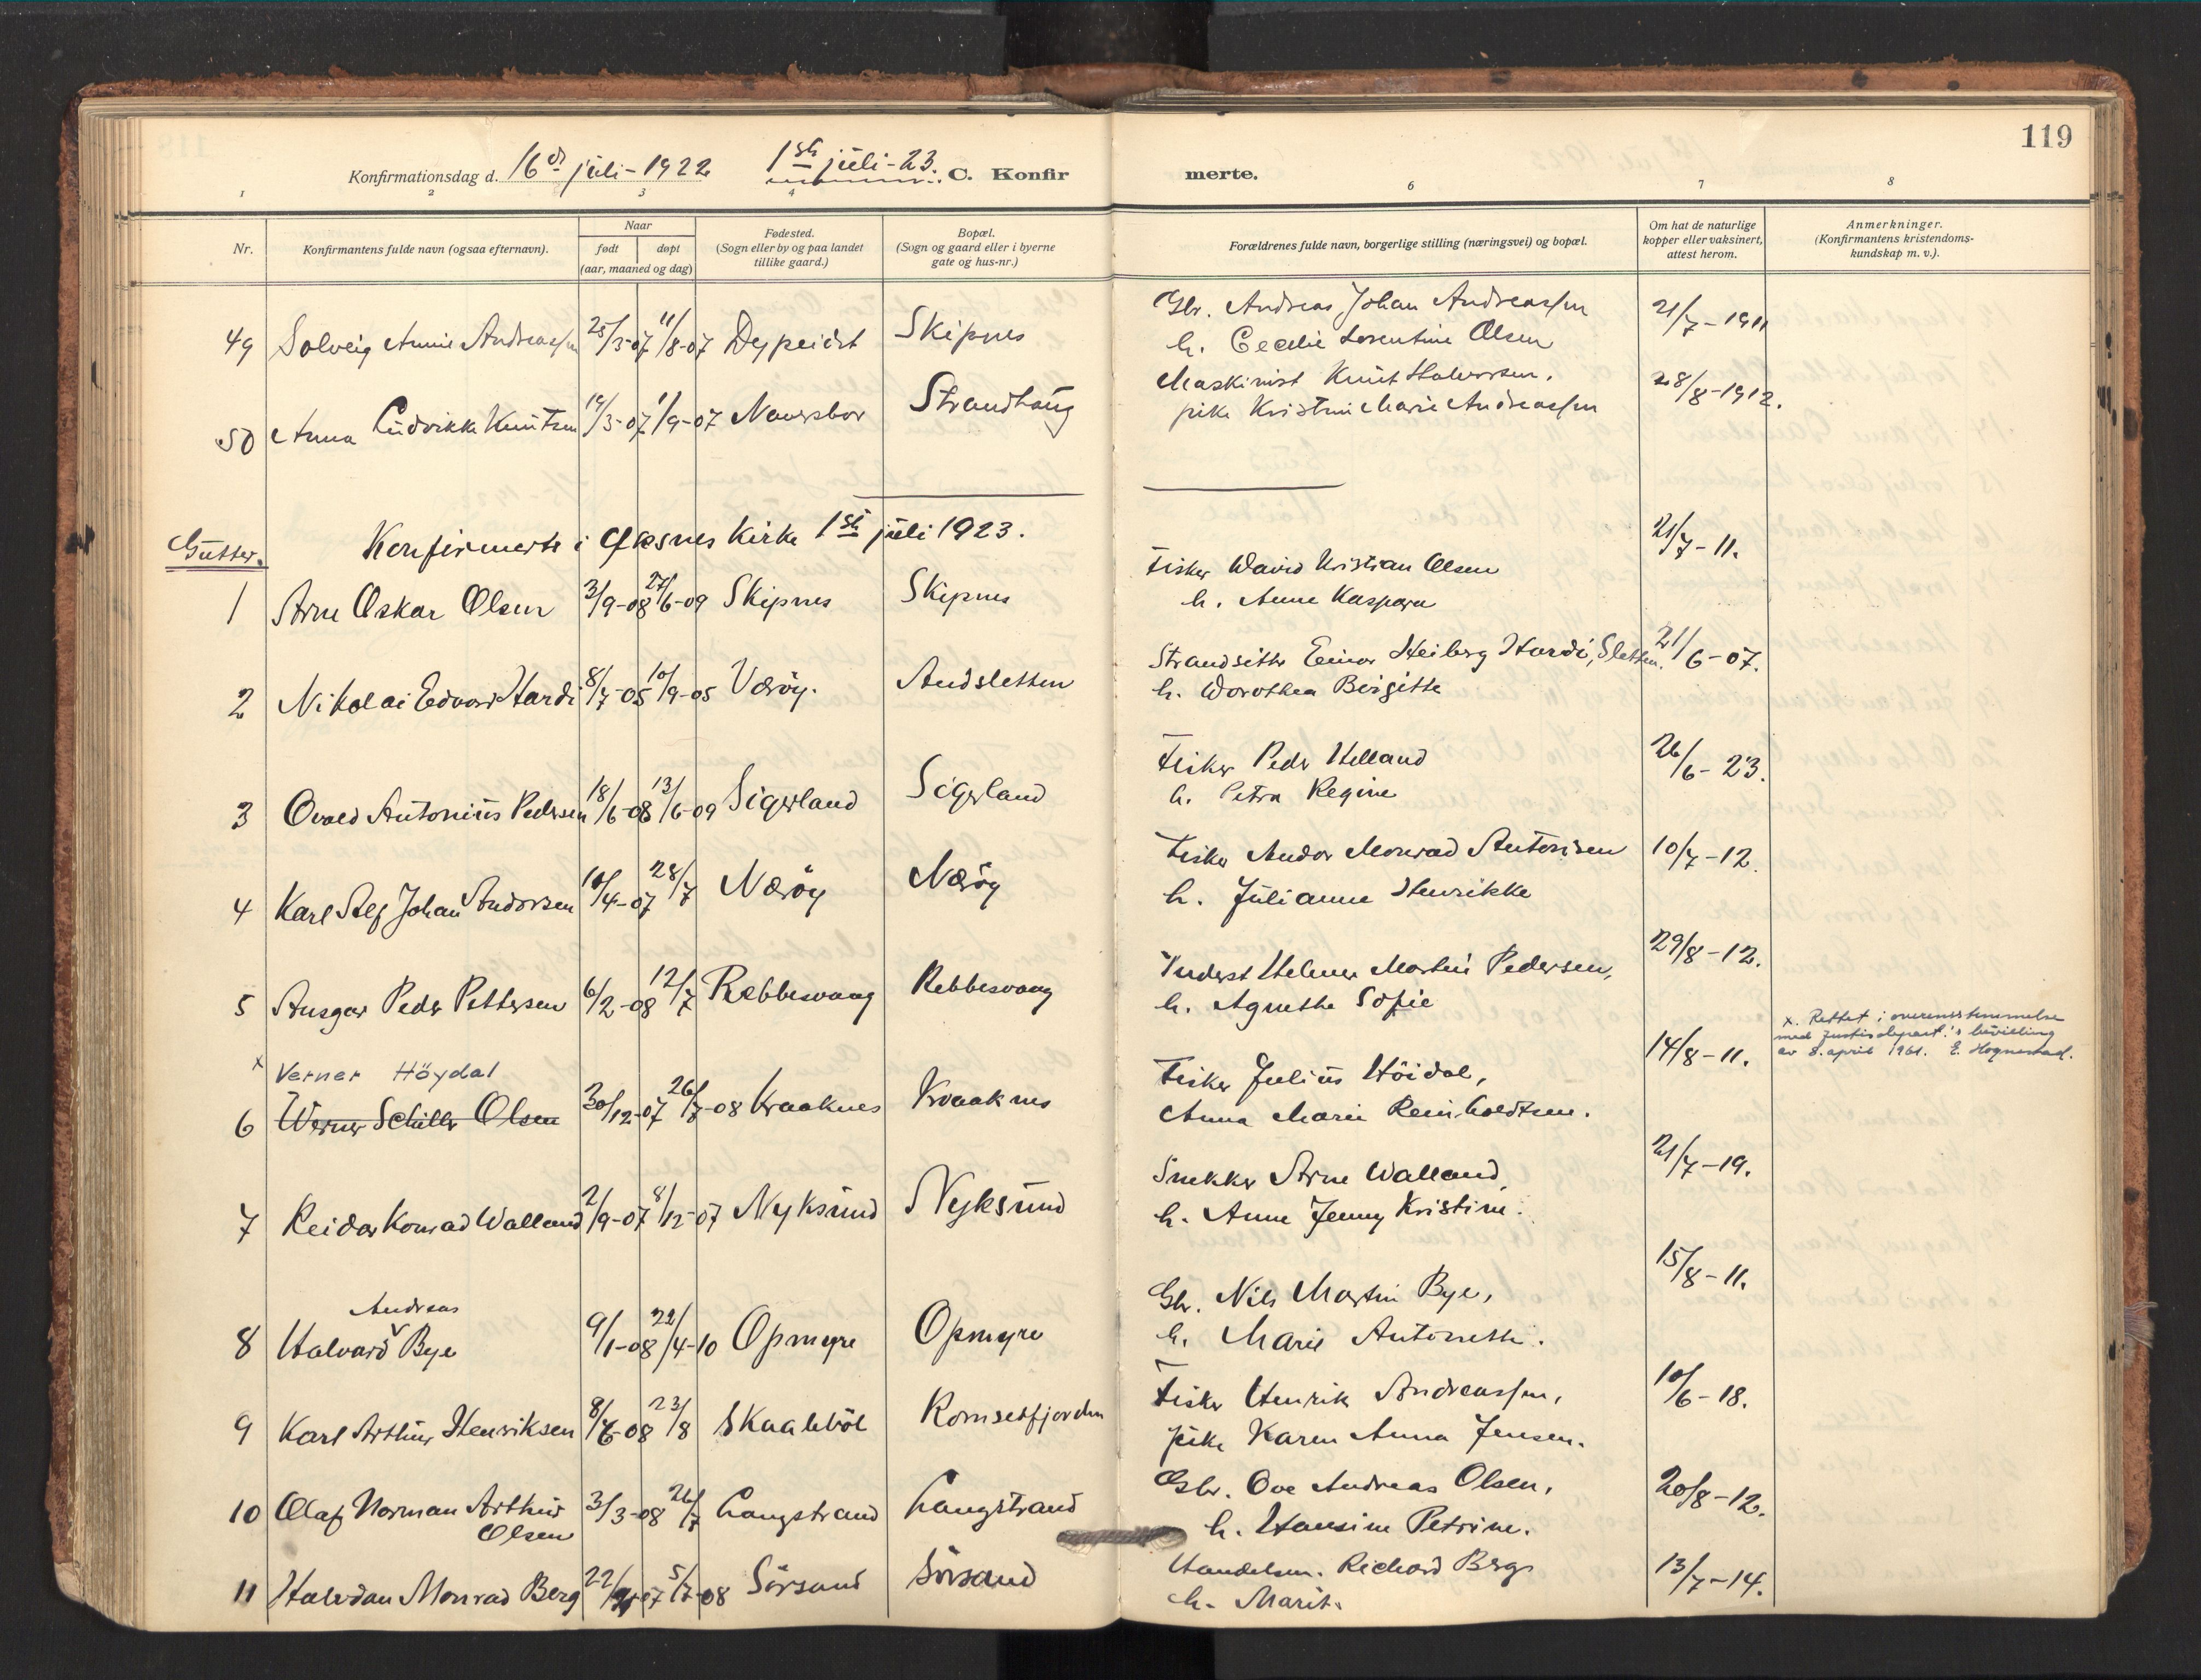 119
Konfirmationsdag d. 16de juli - 1922 1ste juli - 23. C. Konfir merte.
1 2 3 4 6 7 8
Nr. Konfirmantens fulde navn (ogsaa efternavn). Naar født døpt (aar, maaned og dag) Fødested. (Sogn eller by og paa landet tillike gaard.) Bopæl. (Sogn og gaard eller i byerne gate og hus-nr.) Forældrenes fulde navn, borgerlige stilling (næringsvei) og bopæl. Om hat de naturlige kopper eller vaksinert, attest herom. Anmerkninger. (Konfirmantens kristendoms- kundskap m. v.).
49 Solveig Annie Andreassen 25/3-07 11/8-07 Skipnes Gbr. Andreas Johan Andreassen 21/7-1911
h. Cecelie Lorentine Olsen
50 Anna Ludvikke Knutsen 19/3-07 1/9-07 Strandhaug Maskinist Knut Halvorsen. 28/8-1912.
pike Kristine Marie Andreassen
Gutter. Konfirmerte i Øksnes Kirke 1ste juli 1923.
1 Arne Oskar Olsen 3/9-08 27/6-09 Skipnes Skipnes Fisker David Kristian Olsen 21/7-11.
h. Anne Kaspara
2 Nikolai Edvard Hardi 8/7-05 10/9-05 Væröy. Andsletten Strandsitter Einar Heiberg Hardi, Sletten. 21/6-07.
h. Dorothea Birgitte
3 Osvald Antonius Pedersen 18/6-08 13/6-09 Sigerland Sigerland Fisker Peder Helland 26/6-23.
h. Petra Regine
4 Karl Alf Johan Andorsen 10/4-07 28/7 Næröy Næröy Fisker Andor Monrad Antonsen 10/7-12.
h. Julianne Henrikke
5 Ansgar Peder Pettersen 6/2-08 12/7 Rebbesvaag Rebbesvaag Inderst Helmer Martin Pedersen, 29/8-12.
h. Agnethe Sofie
x. Rettet i overensstemmelse
med Justisdepart.'s bevilling
av 8. april 1961. E. Hognestad.
x Verner Höydal
6 Werner Schiller Olsen 30/12-07 26/7-08 Kraaknes Kraaknes Fisker Julius Höidal, 14/8-11.
Anna Marie Reinholdtsen.
7 Reidar Konrad Walland 2/9-07 8/12-07 Nyksund Nyksund Snekker Arne Walland, 21/7-19.
h. Anne Jenny Kristine.
Andreas
8 Halvard Bye 9/1-08 22/4-10 Opmyre Opmyre Gbr. Nils Martin Bye, 15/8-11.
h. Marie Antonette.
9 Karl Arthur Henriksen 8/6-08 23/8 Romsetfjorden Fisker Henrik Andreassen, 10/6-18.
pike Karen Anna Jensen.
10 Olaf Norman Arthur 3/3-08 26/7 Langstrand Langstrand Gbr. Ove Andreas Olsen, 20/8-12.
Olsen h. Hansine Petrine.
11 Halvdan Monrad Berg 22/ -07 5/7-08 Sörsand Sörsand Handelsm. Richard Berg 13/7-14.
h. Marit.